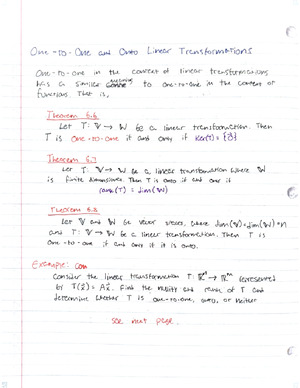 One-to-One and Onto Linear Transformations
One-to-one in the context of linear transformations
has a similar meaning to one-to-one in the context of
functions. That is,
Theorem 6.6
Let T: V → W be a linear transformation. Then
T is one-to-one if and only if ker(T) = {0}
Theorem 6.7
Let T: V → W be a linear transformation where W
is finite dimensional. Then T is onto if and only if
rank(T) = dim(W)
Theorem 6.8
Let V and W be vector spaces, where dim(V) = dim(W) = n
and T: V → W be a linear transformation. Then T is
one-to-one if and only if it is onto.
Example:
Consider the linear transformation T: Rⁿ → Rᵐ represented
by T(x) = Ax. Find the nullity and rank of T and
determine whether T is one-to-one, onto, or neither
see next page.